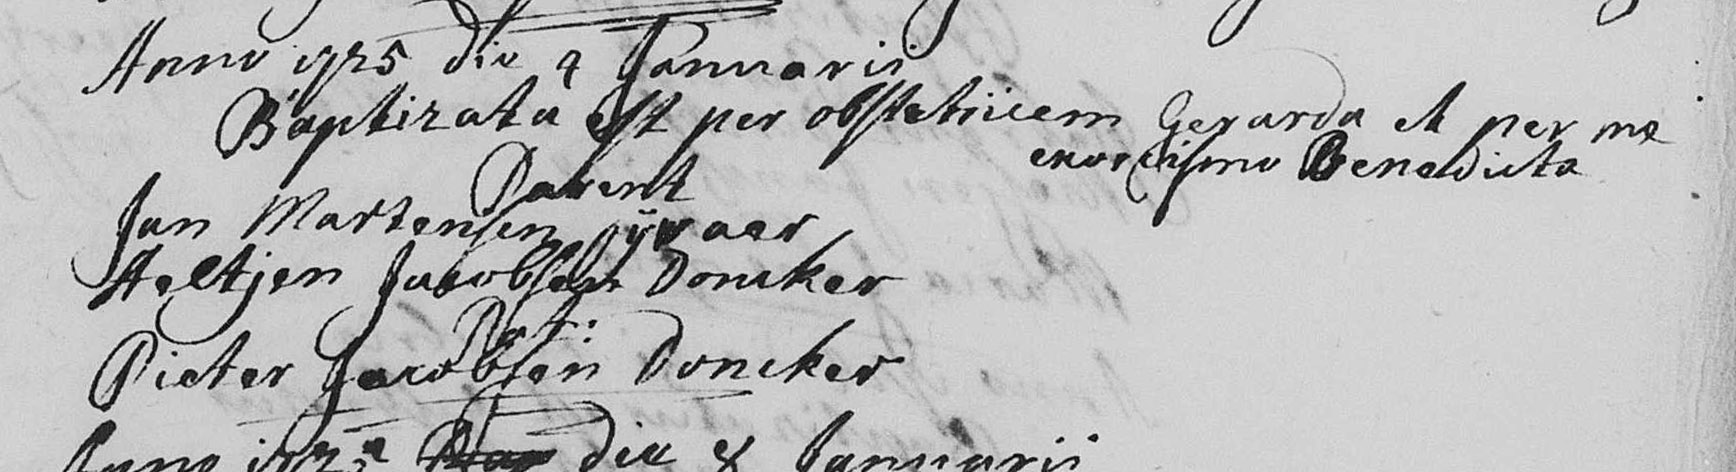 Anno 1725 die 4 Januarii
Baptizata est per obstetricem Gerarda et per me
exorcismo Benedicta
Parent
Jan Martensen
Aeltjen Jacobsen Doncker
Pat:
Pieter Jacobsen Doncker
Anno die 8 Januarii